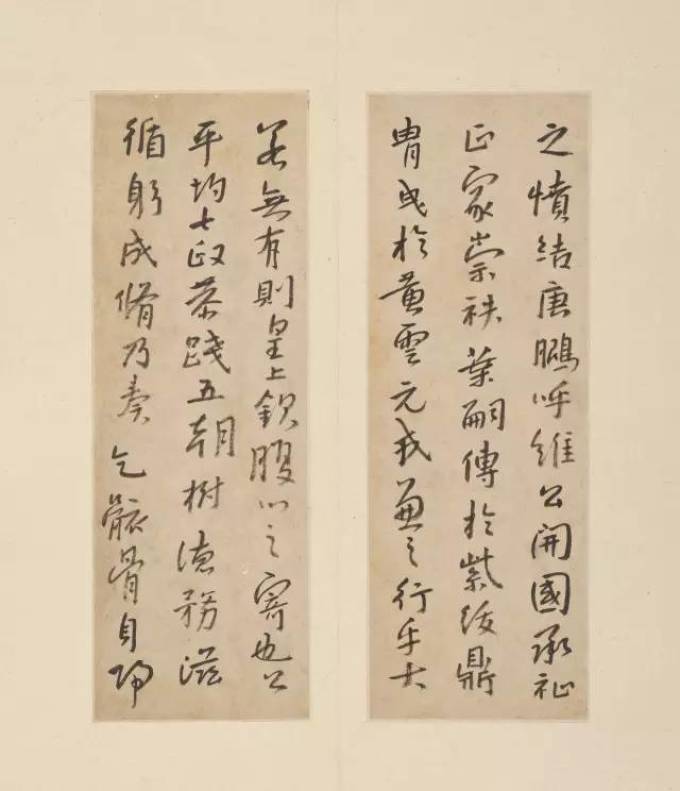 之憤結唐鵬呼維公開國承祉
正家崇秩葉嗣傳於紫綬鼎
胄或於黃雲元戎兼之行乎大
若無有則皇上欽腹心之寄也公
平均七政恭踐五朝樹德務滋
循躬成脩乃奏乞骸骨自歸